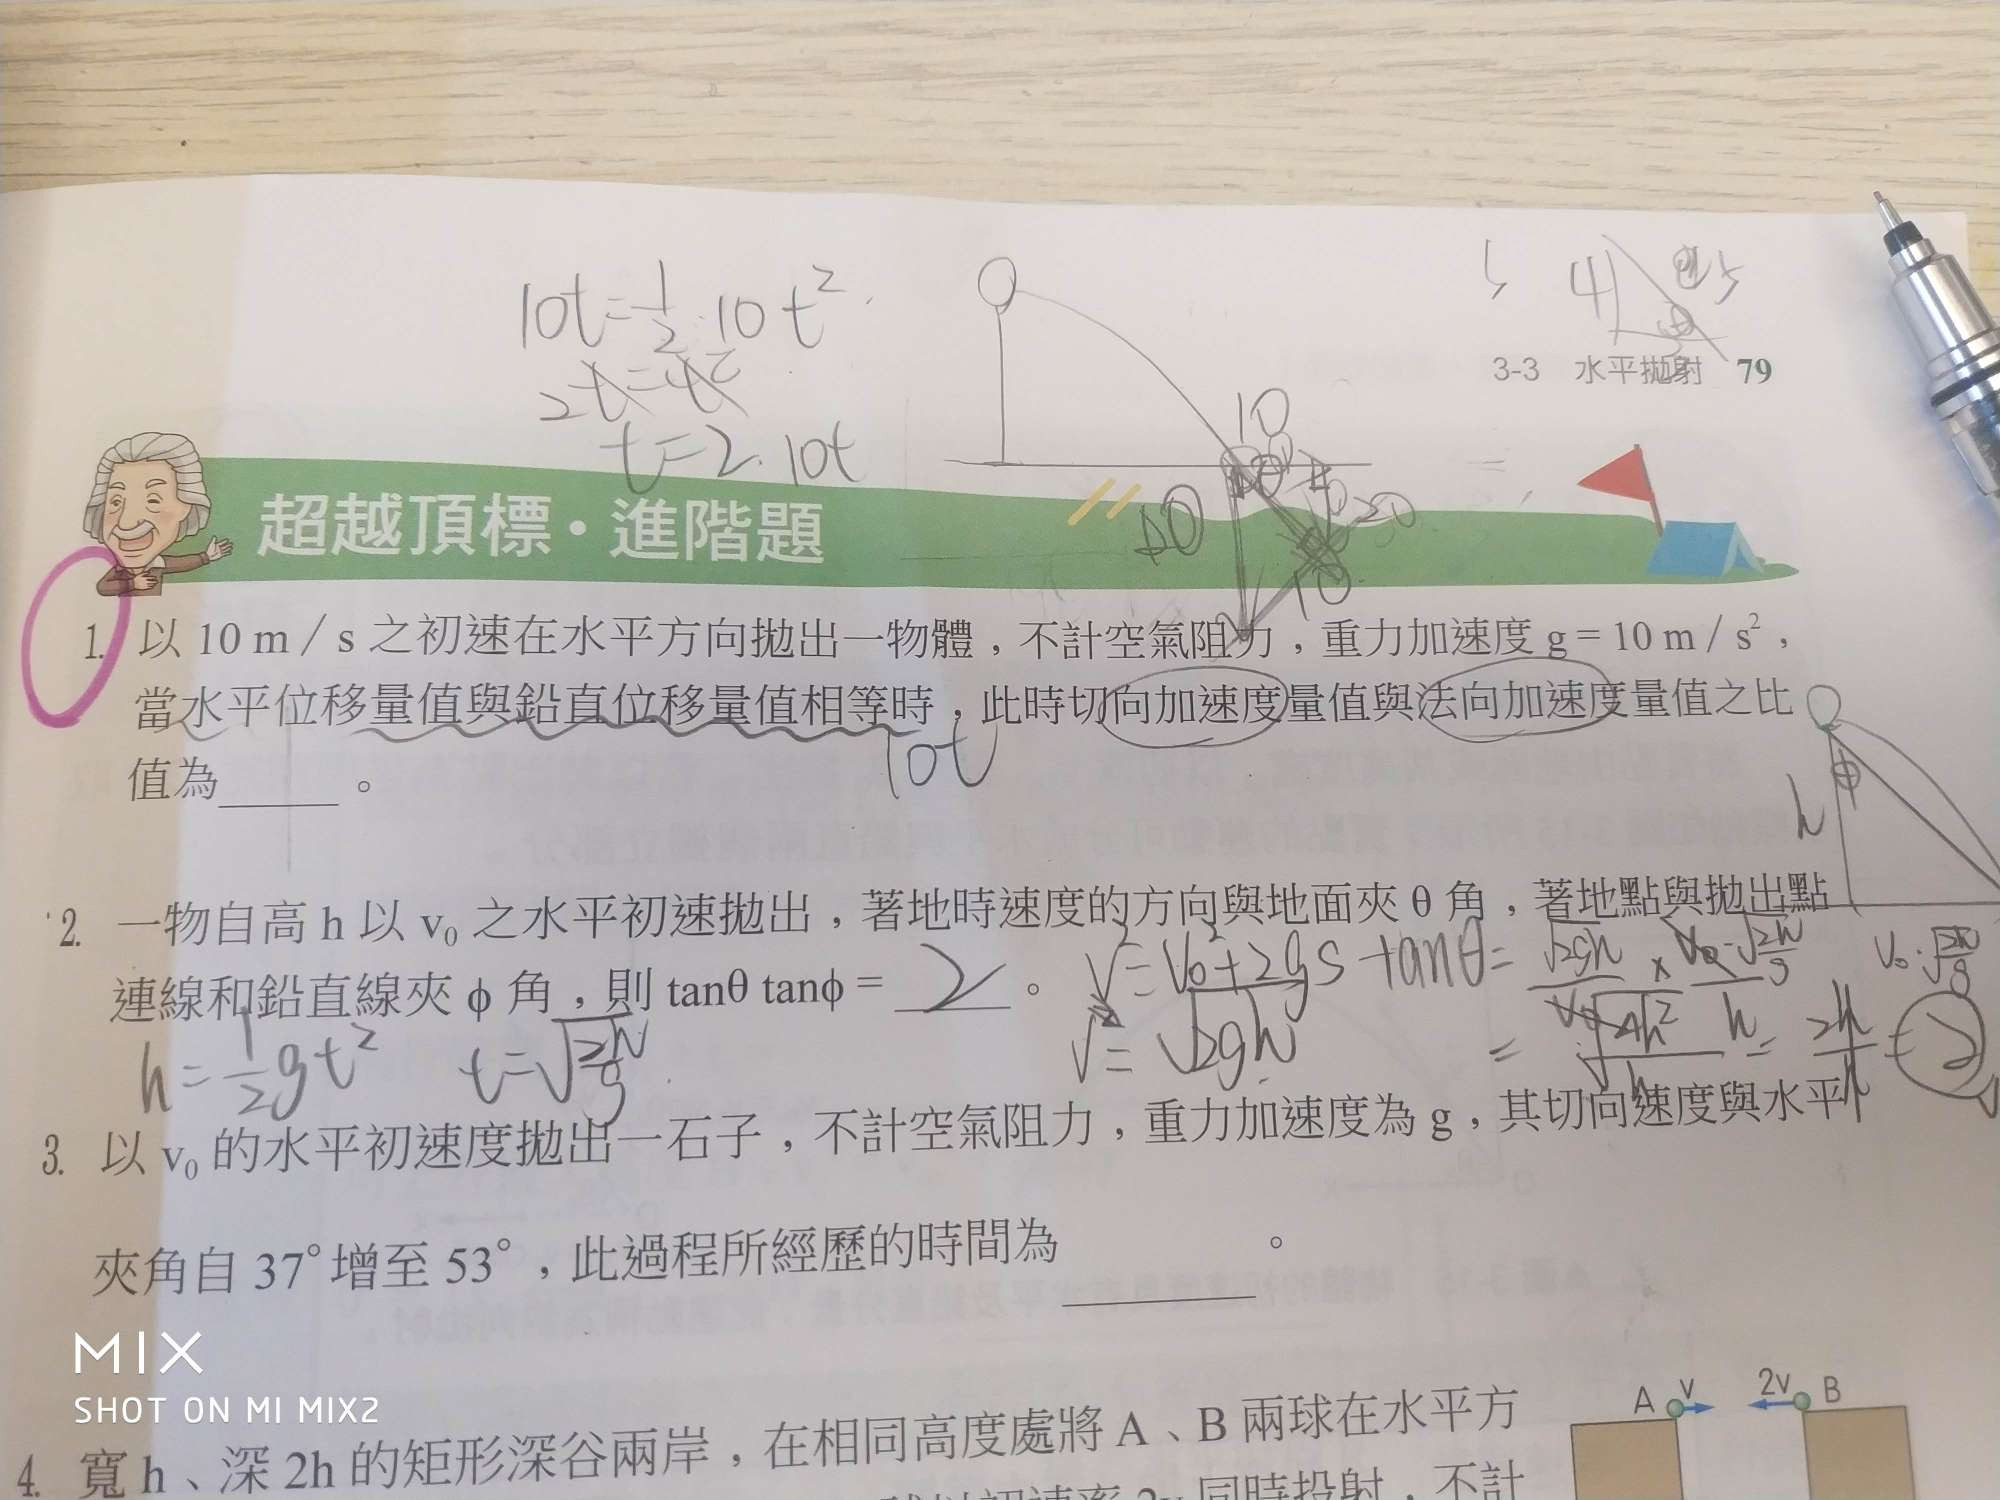 10t=1/2·10t²
2t=t²
t=2. 10t
10
10
10
3-3 水平拋射 79
超越頂標·進階題
1. 以 10 m/s 之初速在水平方向拋出一物體，不計空氣阻力，重力加速度 g = 10 m/s²，
當水平位移量值與鉛直位移量值相等時，此時切向加速度量值與法向加速度量值之比
10t
值為_____。
h
φ
2. 一物自高 h 以 v₀ 之水平初速拋出，著地時速度的方向與地面夾 θ 角，著地點與拋出點
連線和鉛直線夾 φ 角，則 tanθ tanφ = 2 。
v²=v₀²+2gs
v=√2gh
h=1/2gt² t=√2h/g
3. 以 v₀ 的水平初速度拋出一石子，不計空氣阻力，重力加速度為 g，其切向速度與水平
夾角自 37°增至 53°，此過程所經歷的時間為_____。
MIX
SHOT ON MI MIX2
A v 2v B
4. 寬 h、深 2h 的矩形深谷兩岸，在相同高度處將 A、B 兩球在水平方
同時投射，不計